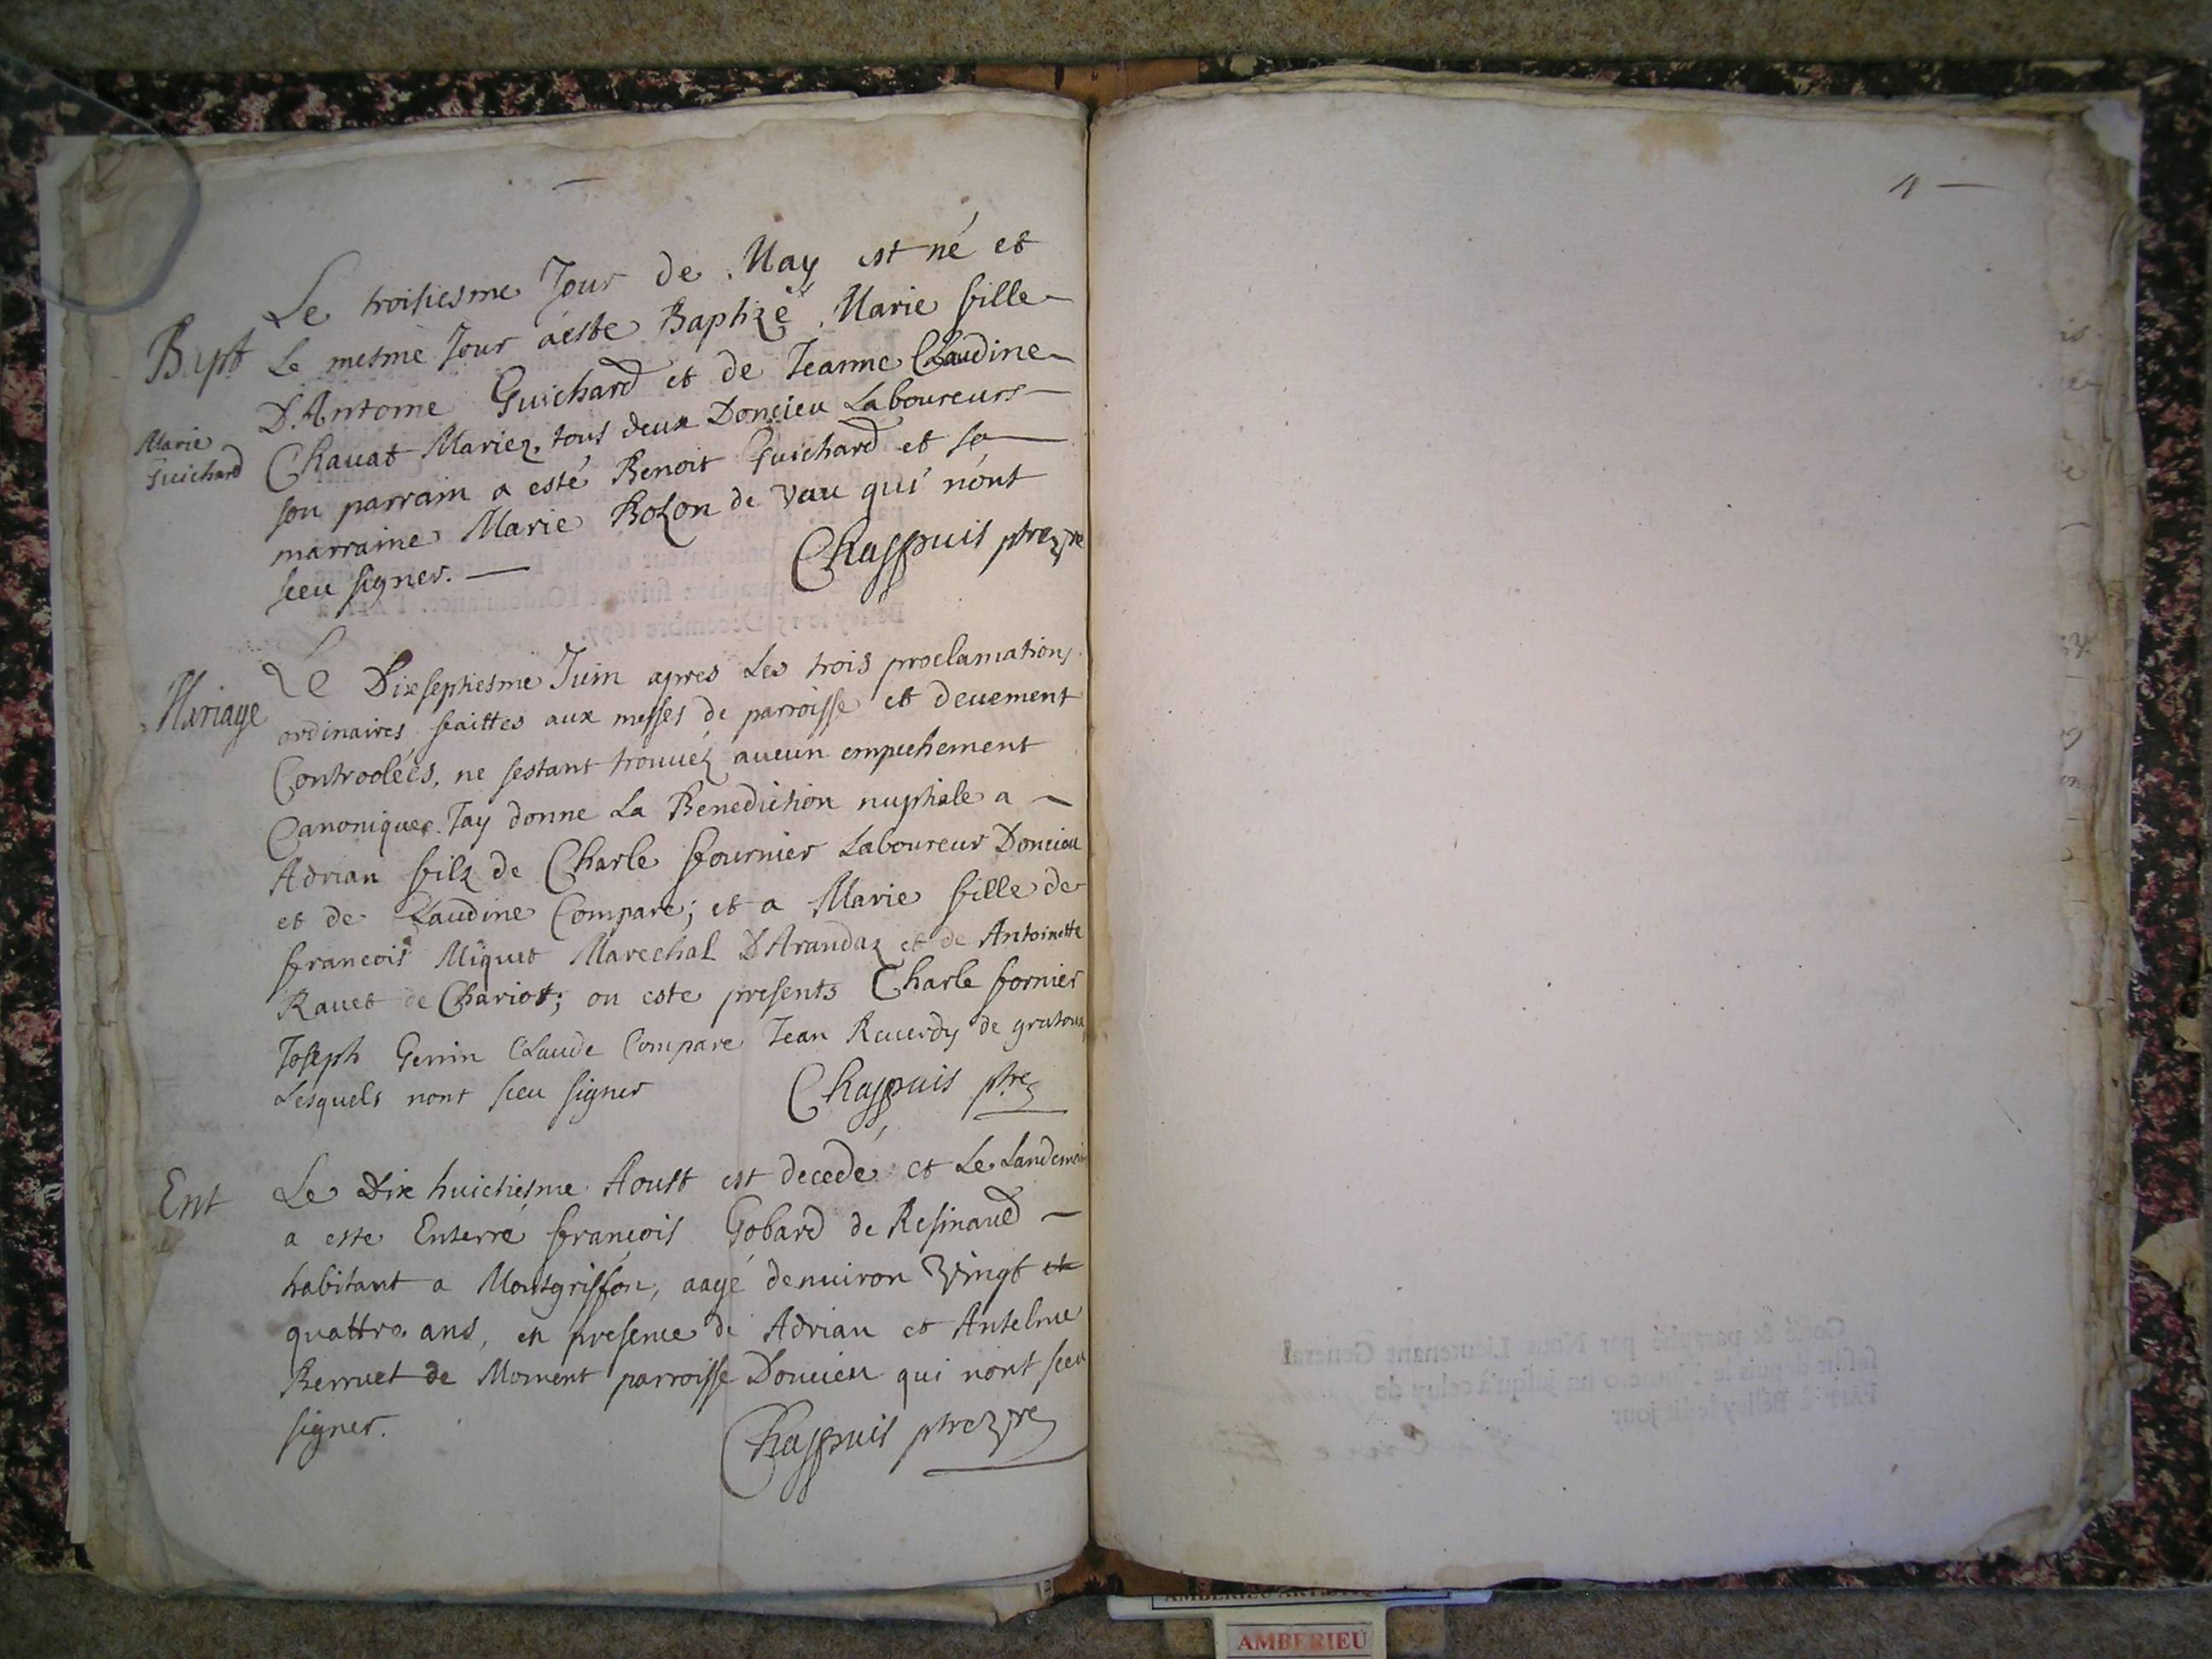 Le troisiesme Jour de May est né et
Bapt Le mesme Jour a este Baptizé Marie fille
D'Antoine Guichard et de Jeanne Claudine
Marie
Guichard
Chavat Mariez, tous deux Doncieu Laboureurs
son parrain a esté Benoit Guichard et sa
marraine Marie Bozon de vau qui n'ont
sceu signer. Chappuis ptre
Mariage
Le Dixseptiesme Juin apres Les trois proclamations
ordinaires faittes aux messes de parroisse et deuement
Controolées, ne sestant trouvéz aucun empechement
Canonique. Jay donne La Benediction nuptiale a
Adrian filz de Charle fournier Laboureur Doncieu
et de Claudine Compare; et a Marie fille de
francois Miquet Marechal D'Arandaz et de Antoinette
Ravet de Chariot; on este presents Charle fornier
Joseph Genin Claude Compare Jean de
Lesquels nont sceu signer Chappuis ptre
Ent Le Dix huictiesme Aoust est decedé et Le Landemain
a este Enterré francois Gobard de Resinaud
habitant a Montgriffon, aagé denuiron Vingt et
quattre ans, en presence de Adrian et Antelme
Berruet de Moment parroisse Doncieu qui n'ont sceu
signer. Chappuis ptre
1
Cotté & paraphé par Nous Lieutenant General
AMBERIEU